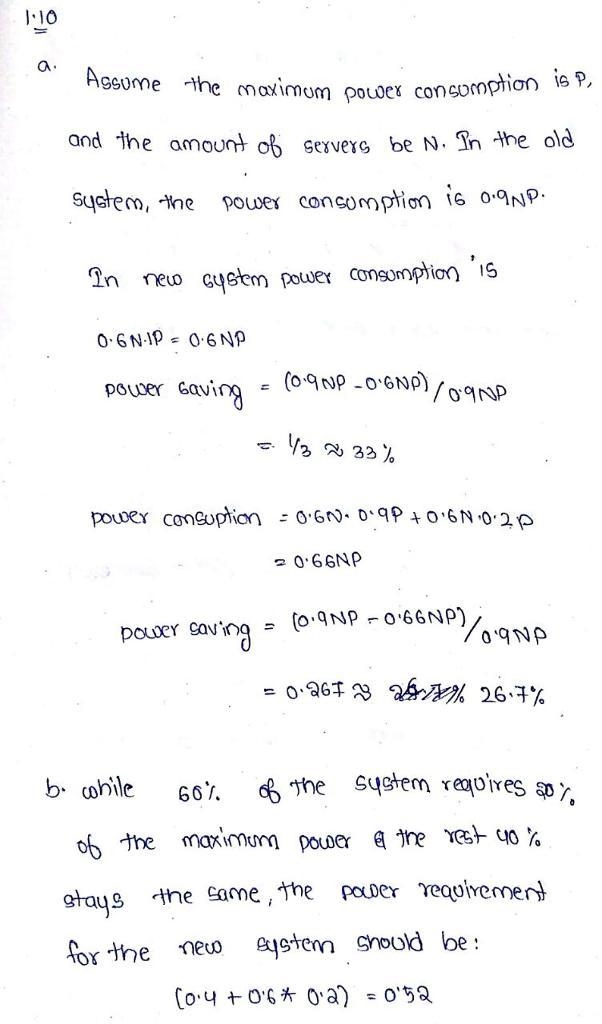 1.10
a. Assume the maximum power consumption is P,
and the amount of servers be N. In the old
system, the power consumption is 0.9NP.
In new system power consumption is
0.6N.1P = 0.6NP
power saving = (0.9NP - 0.6NP) / 0.9NP
= 1/3 ≈ 33%
power consuption = 0.6N. 0.9P + 0.6N.0.2P
= 0.66NP
power saving = (0.9NP - 0.66NP) / 0.9NP
= 0.267 ≈ 26.7%
b. while 60% of the system requires 20%
of the maximum power & the rest 40%
stays the same, the power requirement
for the new system should be:
(0.4 + 0.6 * 0.2) = 0.52